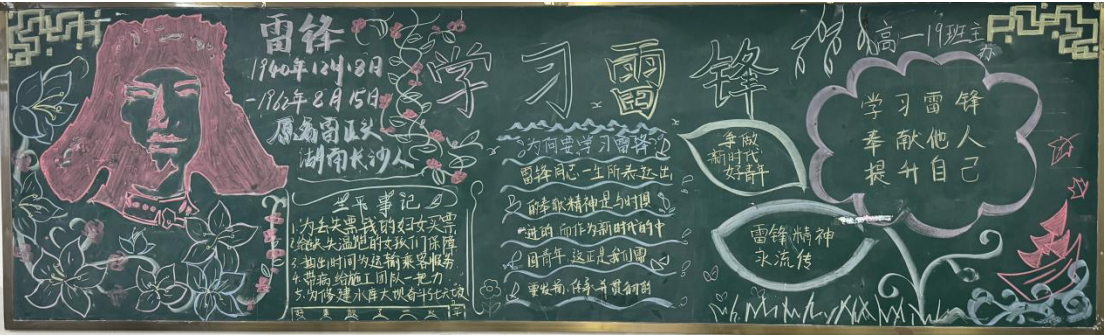 雷锋
1940年12月18日
-1962年8月15日
原名雷正兴
湖南长沙人
生平事记
1.为丢失票我的妇女买票
2.给失温饱的女孩们保障
3.抽出时间为运输乘客服务
4.带病给施工团队一把力
5.为修建水库大坝奋斗
学习雷锋
为何要学习雷锋
雷锋同志一生所表达出
的奉献精神是与时俱
进的 而作为新时代的中
国青年 这正是我们需
要发扬,传承
争做
新时代
好青年
雷锋精神
永流传
高一19班主
办
学习雷锋
奉献他人
提升自己